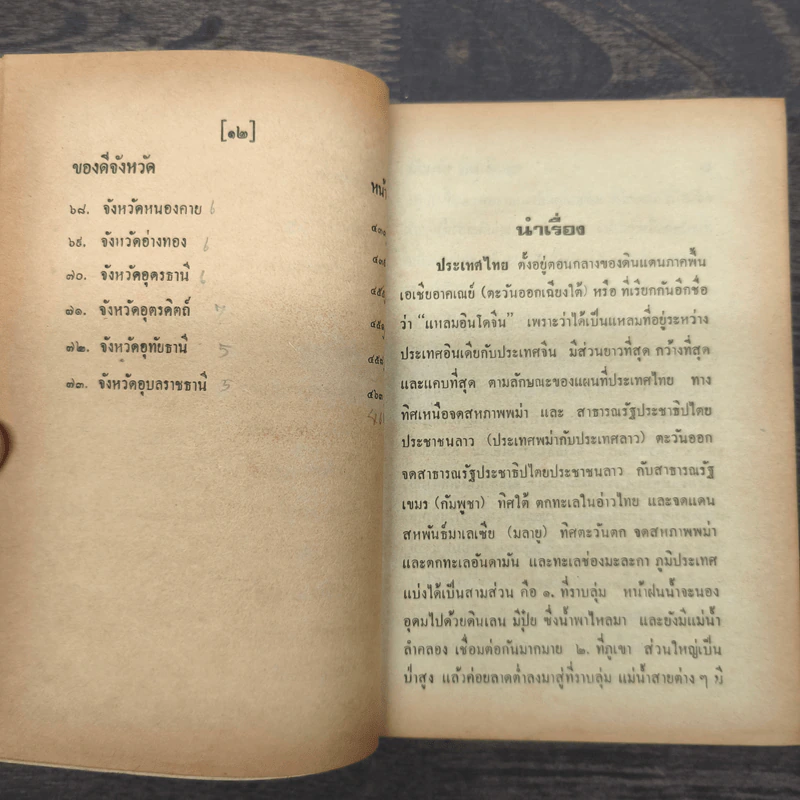 [๑๒]
ของดีจังหวัด
หน้า
๖๘. จังหวัดหนองคาย ๖
๖๙. จังหวัดอ่างทอง ๖
๗๐. จังหวัดอุดรธานี ๖
๗๑. จังหวัดอุตรดิตถ์
๗๒. จังหวัดอุทัยธานี 5
๗๓. จังหวัดอุบลราชธานี 5
นำเรื่อง
ประเทศไทย ตั้งอยู่ตอนกลางของดินแดนภาคพื้น
เอเซียอาคเณย์ (ตะวันออกเฉียงใต้) หรือ ที่เรียกกันอีกชื่อ
ว่า “แหลมอินโดจีน” เพราะว่าได้เป็นแหลมที่อยู่ระหว่าง
ประเทศอินเดียกับประเทศจีน มีส่วนยาวที่สุด กว้างที่สุด
และแคบที่สุด ตามลักษณะของแผนที่ประเทศไทย ทาง
ทิศเหนือจดสหภาพพม่า และ สาธารณรัฐประชาธิปไตย
ประชาชนลาว (ประเทศพม่ากับประเทศลาว) ตะวันออก
จดสาธารณรัฐประชาธิปไตยประชาชนลาว กับสาธารณรัฐ
เขมร (กัมพูชา) ทิศใต้ ตกทะเลในอ่าวไทย และจดแดน
สหพันธ์มาเลเซีย (มลายู) ทิศตะวันตก จดสหภาพพม่า
และตกทะเลอันดามัน และทะเลช่องมะละกา ภูมิประเทศ
แบ่งได้เป็นสามส่วน คือ ๑. ที่ราบลุ่ม หน้าฝนน้ำจะนอง
อุดมไปด้วยดินเลน มีปุ๋ย ซึ่งน้ำพาไหลมา และยังมีแม่น้ำ
ลำคลอง เชื่อมต่อกันมากมาย ๒. ที่ภูเขา ส่วนใหญ่เป็น
ป่าสูง แล้วค่อยลาดต่ำลงมาสู่ที่ราบลุ่ม แม่น้ำสายต่าง ๆ มี